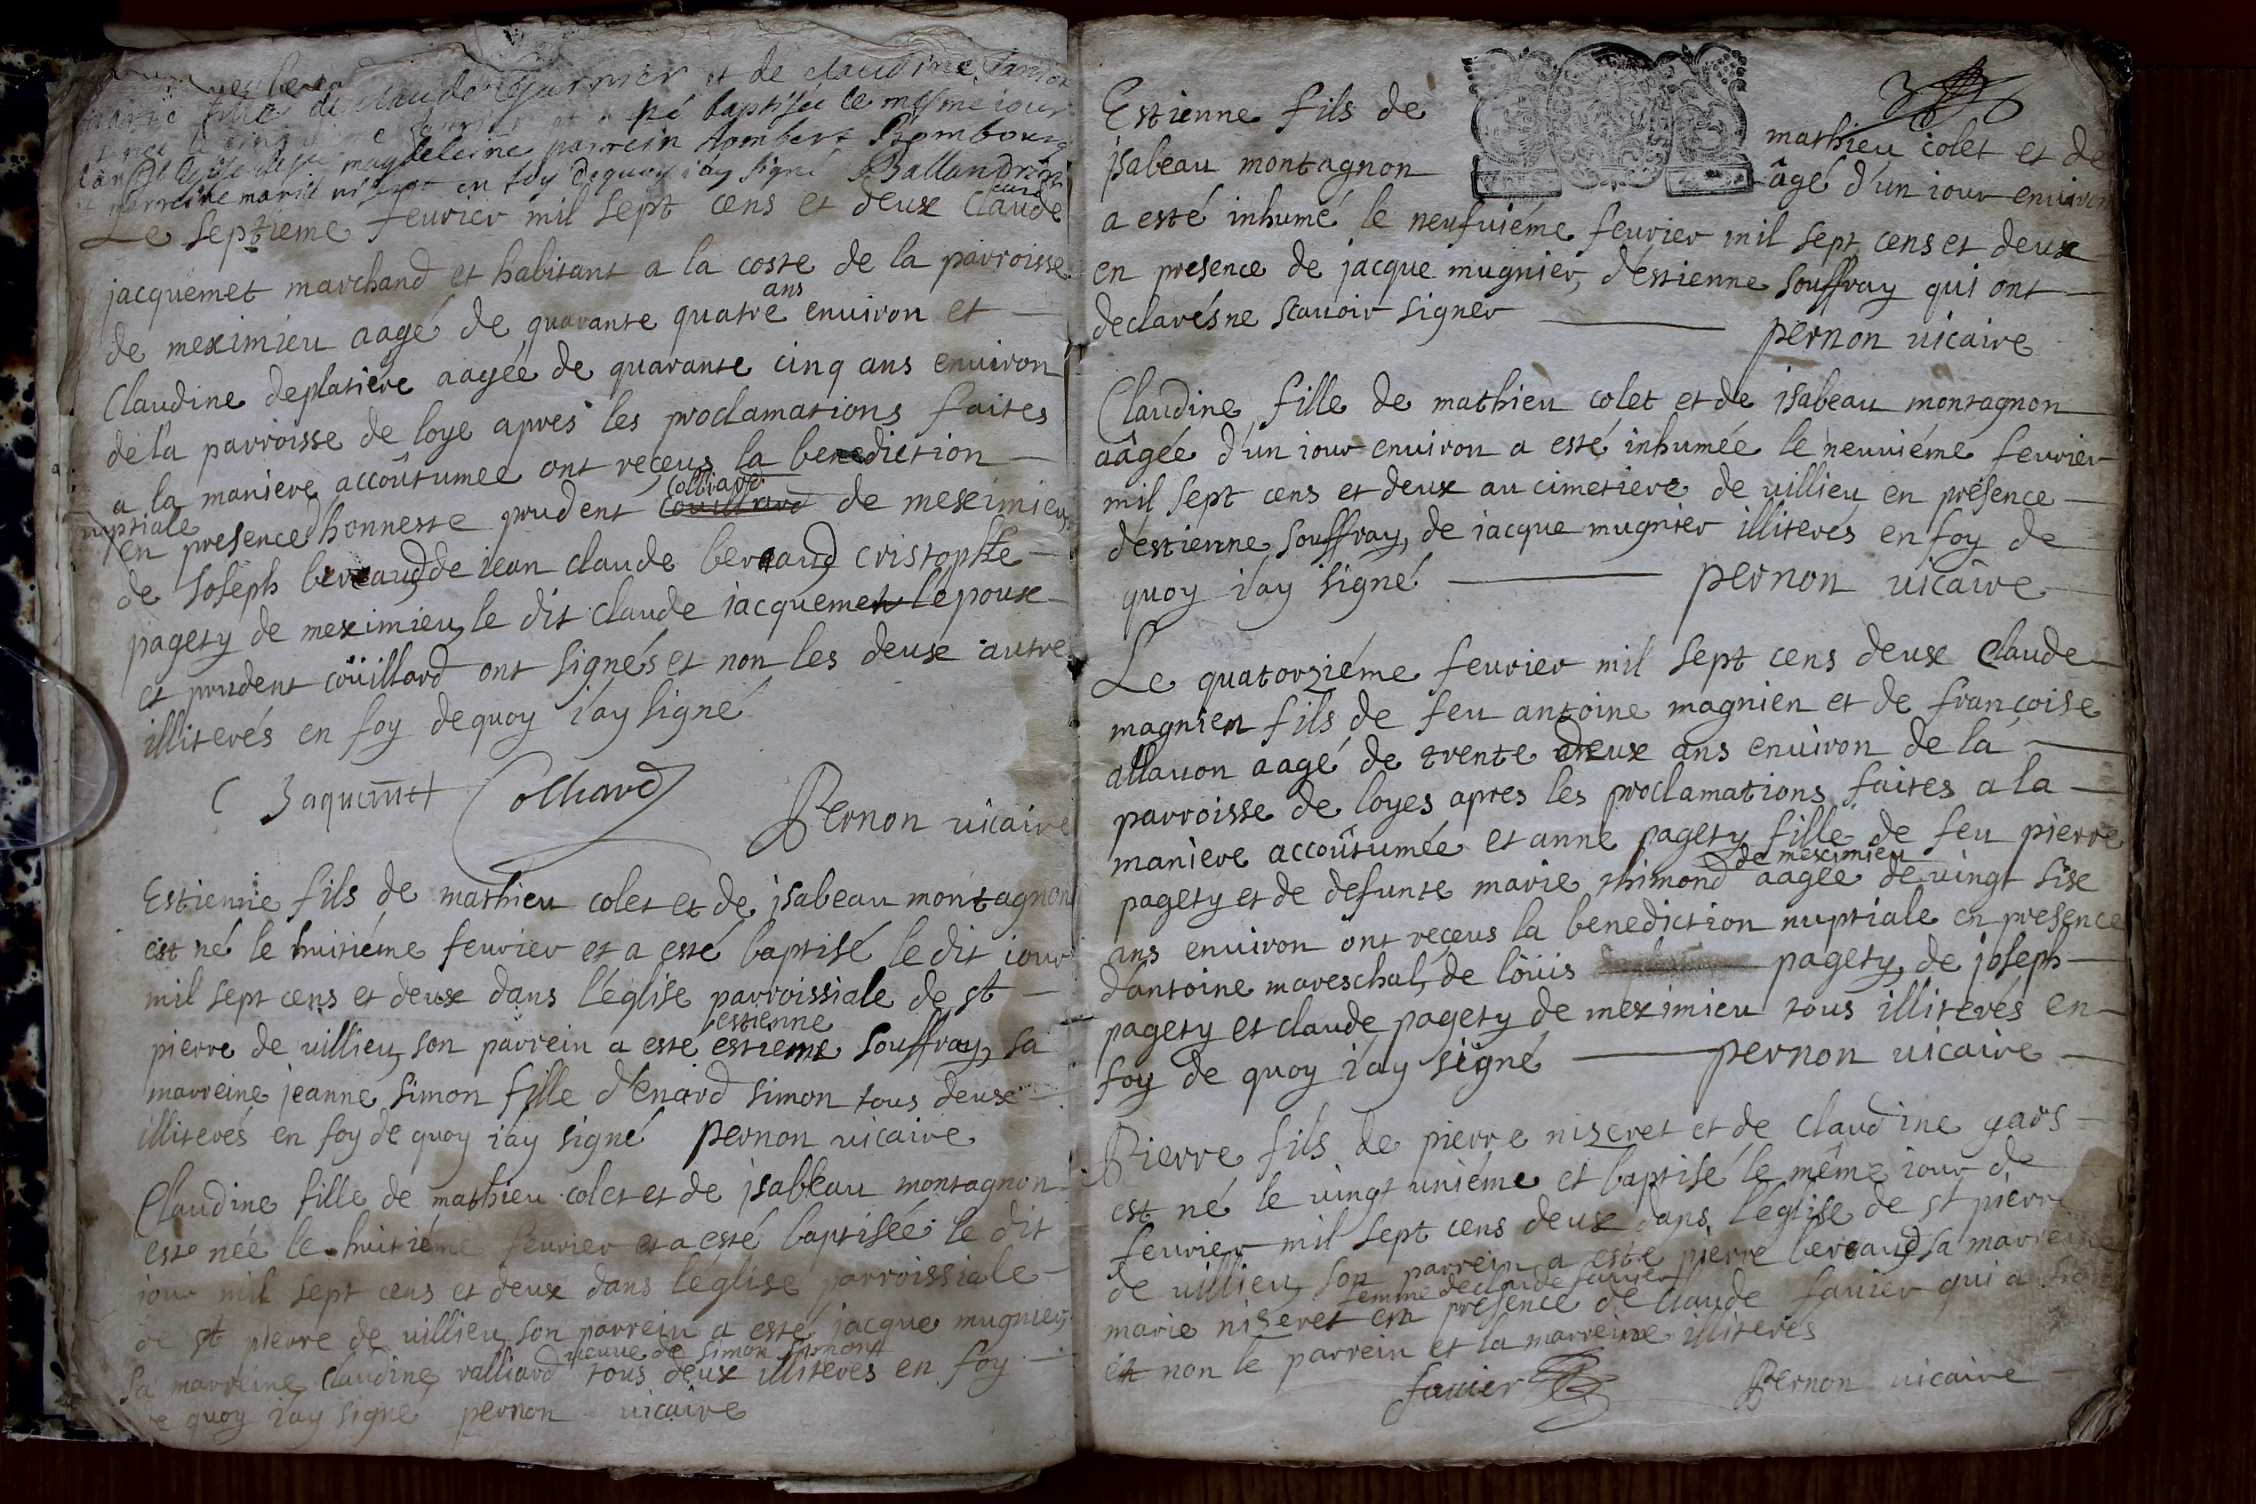 fille de claude Garnier et de claudine
baptisée le mesme iour
magdeleine parrein
marreine marie en foy dequoy iay signé Ballandrin
curé
Le septieme feurier mil sept cens et deux Claude
jacquemet marchand et habitant a la coste de la parroisse
ans
de meximieu aagé de quarante quatre enuiron et
Claudine deplatiere aagée de quarante cinq ans enuiron
de la parroisse de loye apres les proclamations faites
a la maniere accoûtumee ont receus la benediction
nuptiale
Colliard
en presence d'honneste prudent Couillard de meximieu
de Joseph beraud, de iean claude beraud cristophle
pagety de meximieu, le dit claude iacquemet lepoux
et prudent coüillard ont signés et non les deux autre
illiterés en foy dequoy iáy signé
C Jaquemet Colliard
Pernon uicaire
Estienne fils de mathieu colet et de jsabeau montagnon
est né le huitiéme feurier et a esté baptisé le dit iour
mil sept cens et deux dans l'église parroissiale de st
estienne
pierre de uillieu, son parrein a esté estienne souffray, sa
marreine jeanne simon fille d'enard simon tous deux
illiterés en foy de quoy iáy signé pernon uicaire
Claudine fille de mathieu colet et de jsabeau montagnon
est née le huitiéme feurier et a esté baptisée le dit
iour mil sept cens et deux dans léglise parroissiale
de st pierre de uillieu, son parrein a esté jacque mugnier,
ueuue de simon simont
sa marreine claudine ralliard tous deux illiteres en foy
de quoy iáy signe pernon uicaire
Estienne fils de mathieu colet et de
jsabeau montagnon âgé d'un iour enuiron
a esté inhumé le neufuiéme feurier mil sept cens et deux
en presence de jacque mugnier, d'estienne souffray qui ont
declarés ne scauoir signer
pernon uicaire
Claudine fille de mathieu colet et de isabeau montagnon
aâgée d'un iour enuiron a esté inhumée le neuuiéme feurier
mil sept cens et deux au cimetiere de uillieu en présence
d'estienne souffray, de iacque mugnier illiterés en foy de
quoy iáy signé pernon uicaire
Le quatorziéme feurier mil sept cens deux Claude
magnien fils de feu antoine magnien et de françoise
allauon aagé de trente deux ans enuiron de la
parroisse de loyes apres les proclamations faites a la
maniere accoûtumée et anne pagety fille de feu pierre
de meximieu
pagety et de defunte marie thimond aagée de uingt sise
ans enuiron ont reçeus la benediction nuptiale en presence
d'antoine mareschal, de loüis pagety, de joseph
pagety et claude pagety de meximieu tous illiterés en
foy de quoy iáy signé pernon uicaire
Pierre fils de pierre nizeret et de claudine gars
est né le uingt uniéme et baptisé le même iour de
feurier mil sept cens deux dans l'église de st pierre
de uillieu, son parrein a este pierre beraud, sa marreine
femme de claude fauier
marie nizeret en presence de claude fauier qui a signé
et non le parrein et la marreine illiteres
fauier Pernon uicaire